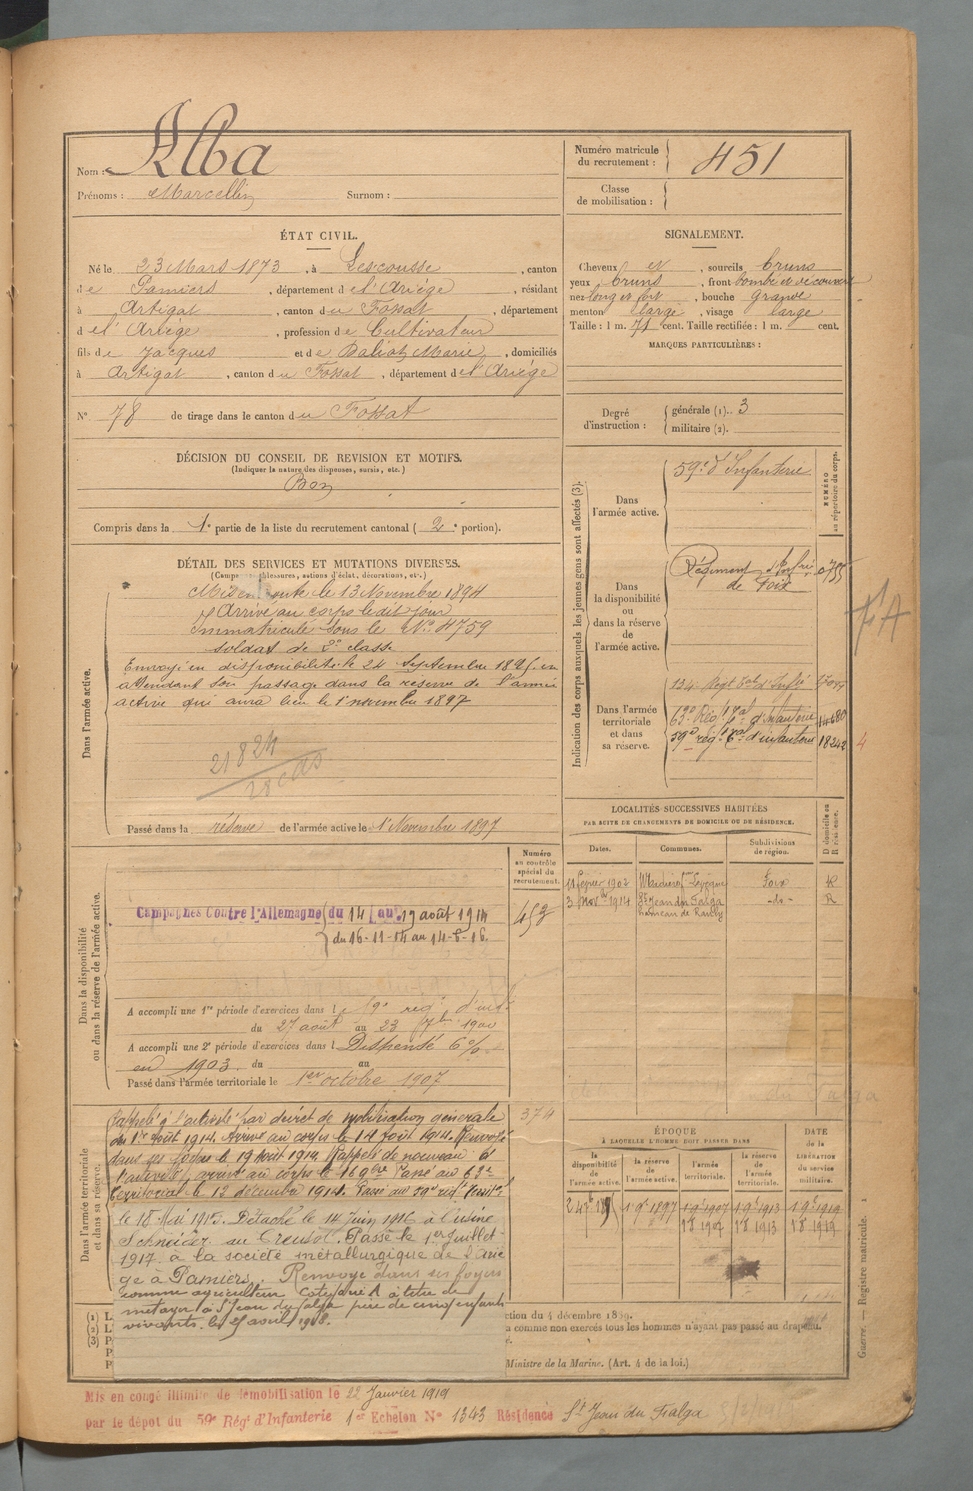 Nom : Alba
Prénoms : Marcellin Surnom :
Numéro matricule du recrutement : 451
Classe de mobilisation :
ÉTAT CIVIL.
Né le 23 Mars 1873, à Lescousse, canton
de Pamiers, département de l'Ariège, résidant
à Artigat, canton du Fossat, département
de l'Ariège, profession de Cultivateur
fils de Jacques et de Marie, domiciliés
à Artigat, canton du Fossat, département de l'Ariège
N° 78 de tirage dans le canton du Fossat
SIGNALEMENT.
Cheveux et, sourcils bruns
yeux bruns, front bombé et découvert
nez long et fort, bouche grande
menton large, visage large
Taille : 1 m. 71 cent. Taille rectifiée : 1 m. cent.
MARQUES PARTICULIÈRES :
Degré d'instruction : générale (1).. 3
militaire (2).
DÉCISION DU CONSEIL DE REVISION ET MOTIFS.
(Indiquer la nature des dispenses, sursis, etc.)
Bon
Compris dans la 1e partie de la liste du recrutement cantonal ( 2e portion).
DÉTAIL DES SERVICES ET MUTATIONS DIVERSES.
(Campagnes, blessures, actions d'éclat, décorations, etc.)
Dans l'armée active.
Mis en route le 13 Novembre 1894
Arrivé au corps le dit jour
Immatriculé sous le N° 4759
soldat de 2e classe
Envoyé en disponibilité le 24 Septembre 1895 en
attendant son passage dans la réserve de l'armée
active qui aura lieu le 1 novembre 1897
21824
Passé dans la réserve de l'armée active le 1 Novembre 1897
Indication des corps auxquels les jeunes gens sont affectés (3).
NUMÉRO au répertoire du corps.
Dans l'armée active.
59e d'Infanterie
Dans la disponibilité ou dans la réserve de l'armée active.
Régiment d'Infrie
de Foix
Dans l'armée territoriale et dans sa réserve.
134e Regt Tal d'Infie
63e Rég. Tal d'infanterie 14680
59e rég. Tal d'infanterie 18242 4
FA
LOCALITÉS SUCCESSIVES HABITÉES
PAR SUITE DE CHANGEMENTS DE DOMICILE OU DE RÉSIDENCE.
Dates. Communes. Subdivisions de région. D domicile ou R résidence.
11 février 1902 Foix R
3 Novbre 1914 St Jean du Falga -do- R
Dans la disponibilité ou dans la réserve de l'armée active.
Numéro au contrôle spécial du recrutement.
453
Campagnes Contre l'Allemagne du 14 au 19 août 1914
du 16-11-14 au 14-6-16.
A accompli une 1re période d'exercices dans le 59e rég. d'inf.
du 27 août au 23 7bre 1900
A accompli une 2e période d'exercices dans l Dispensé 6%
en 1903 du au
Passé dans l'armée territoriale le 1er octobre 1907
Dans l'armée territoriale et dans sa réserve.
374
Rappelé à l'activité par décret de mobilisation générale
du 1er août 1914. Arrivé au corps le 14 août 1914. Renvoyé
dans ses foyers le 19 août 1914. Rappelé de nouveau à
l'activité, arrivé au corps le 16 9bre Passé au 63e
Territorial le 13 décembre 1914. Passé au 59e régt Territl
le 18 Mai 1915. Détaché le 14 juin 1916 à l'usine
Schneider au Creusot. Passé le 1er Juillet
1917 à la société métallurgique de l'Ariè
ge à Pamiers. Renvoyé dans ses foyers
comme agriculteur Catégorie A à titre de
métayer à St Jean du falga père de cinq enfants
vivants le 25 avril 1918.
ÉPOQUE
À LAQUELLE L'HOMME DOIT PASSER DANS
DATE de la LIBÉRATION du service militaire.
la disponibilité de l'armée active. la réserve de l'armée active. l'armée territoriale. la réserve de l'armée territoriale.
1 9e 1897 1 9e 1907 1 9e 1913 1 9e 1919
1 8 1907 1 8 1913 1 8 1919
ction du 4 décembre 1889.
a comme non exercés tous les hommes n'ayant pas passé au drapeau.
Ministre de la Marine. (Art. 4 de la loi.)
Guerre. — Registre matricule. 1
Mis en congé illimité de démobilisation le 22 Janvier 1919
par le dépot du 59e Rég. d'Infanterie 1er Echelon N° 1343 Résidence St Jean du Falga